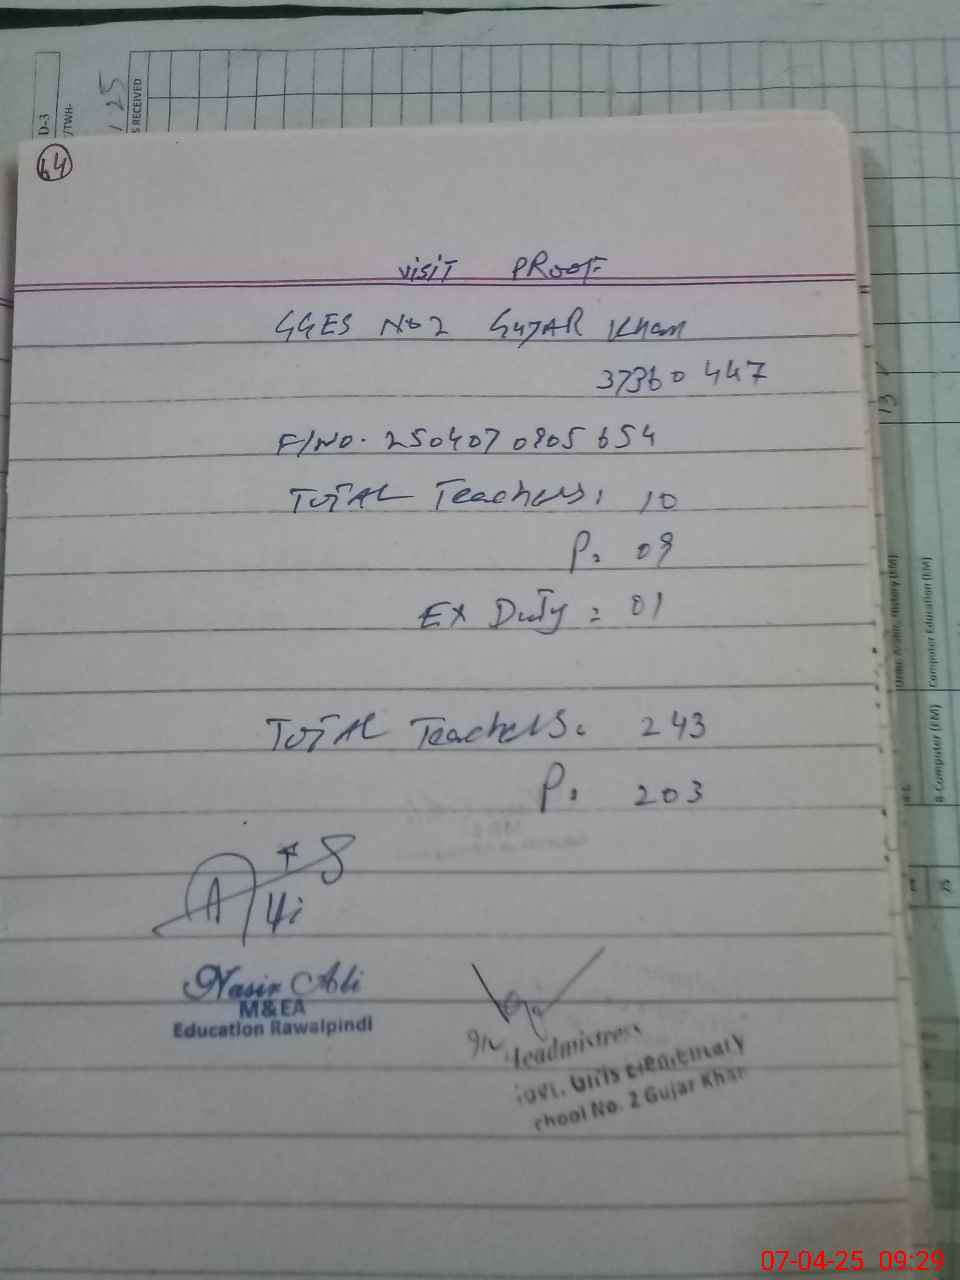 D-3
/TWH-
1.25
S RECEIVED
64
VISIT PROOF
GGES No 2 GUJAR Khan
37360447
F/No. 2504070905654
TOTAL Teachers: 10
P. 09
EX Duty = 01
TOTAL Teachers. 243
P. 203
Nasir Ali
M&EA
Education Rawalpindi
Headmistress
Govt. Girls Elementary
chool No. 2 Gujar Khan
13
Urdu, Arabic, History (EM)
Computer Education (EM)
8 Computer (EM)
07-04-25 09:29